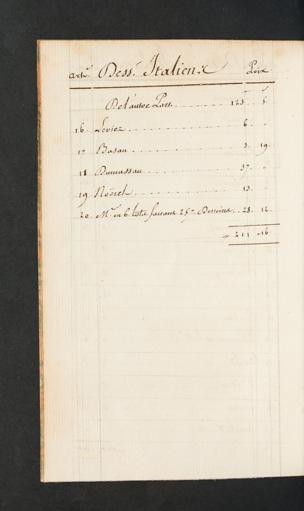 art.s Dess.s Italiens Prix
De l'autre Part 123. 5.
16. Leviez 6. "
17 Basan 3. 19.
18 Dumassau 37. "
19 Nöorel 13.
20. M.r en 6 lots faisant 25 Dessins 28. 12.
211. 16